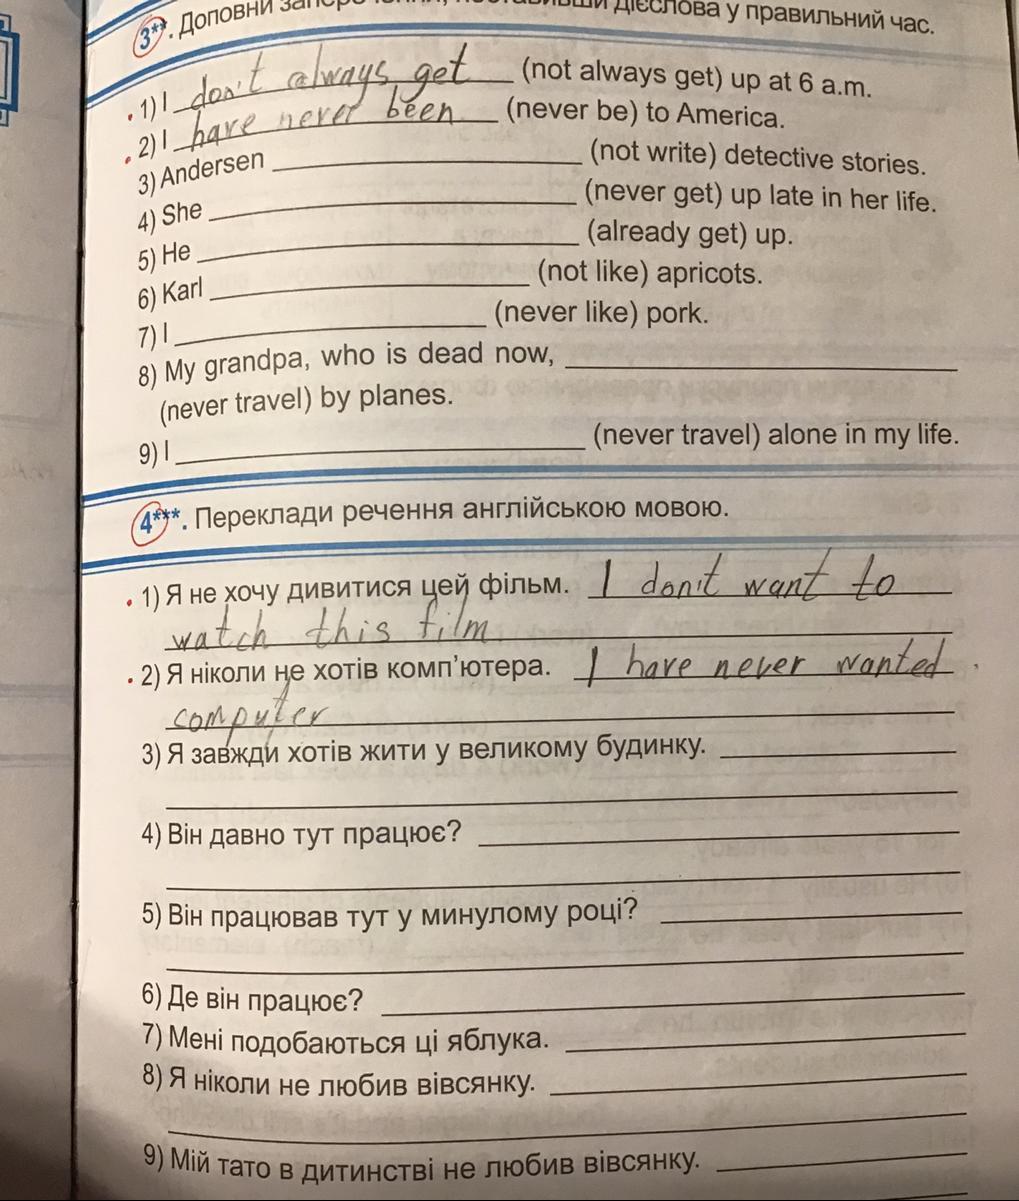 3**. Доповни заперечення, поставивши дієслова у правильний час.
1) I don't always get (not always get) up at 6 a.m.
2) I have never been (never be) to America.
3) Andersen (not write) detective stories.
4) She (never get) up late in her life.
5) He (already get) up.
6) Karl (not like) apricots.
7) I (never like) pork.
8) My grandpa, who is dead now,
(never travel) by planes.
9) I (never travel) alone in my life.
4***. Переклади речення англійською мовою.
1) Я не хочу дивитися цей фільм. I don't want to
watch this film
2) Я ніколи не хотів комп'ютера. I have never wanted
computer
3) Я завжди хотів жити у великому будинку.
4) Він давно тут працює?
5) Він працював тут у минулому році?
6) Де він працює?
7) Мені подобаються ці яблука.
8) Я ніколи не любив вівсянку.
9) Мій тато в дитинстві не любив вівсянку.